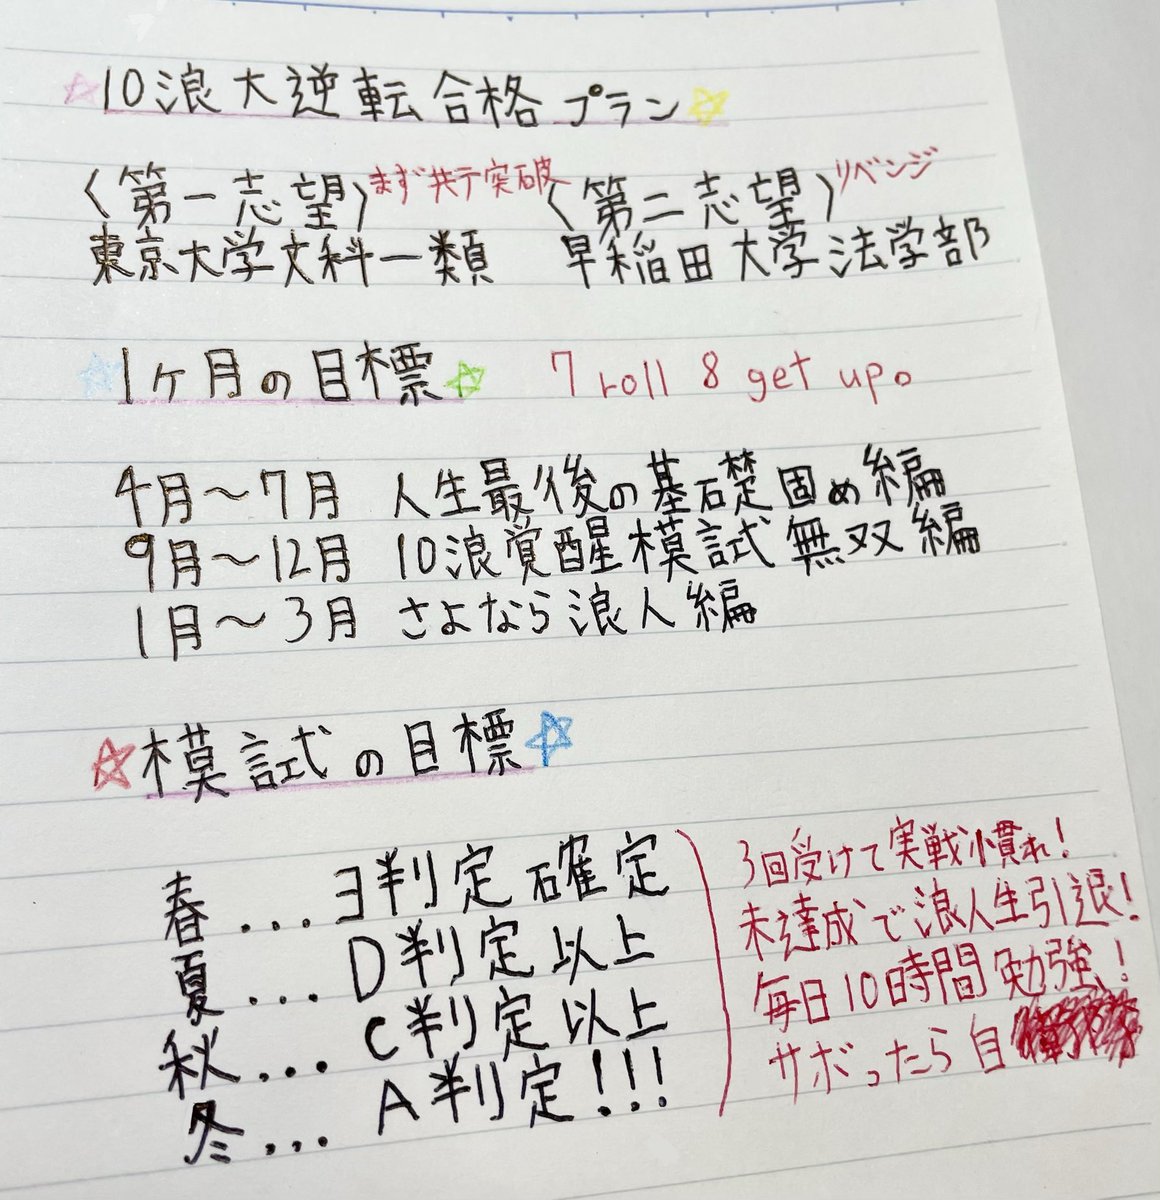 10浪大逆転合格プラン
〈第一志望〉まず共テ突破 〈第二志望〉リベンジ
東京大学文科一類 早稲田大学法学部
1ヶ月の目標 7 roll 8 get up。
4月〜7月 人生最後の基礎固め編
9月〜12月 10浪覚醒模試無双編
1月〜3月 さよなら浪人編
模試の目標
春...ヨ判定確定
夏...D判定以上
秋...C判定以上
冬...A判定!!!
3回受けて実戦慣れ!
未達成で浪人生引退!
毎日10時間勉強!
サボったら自